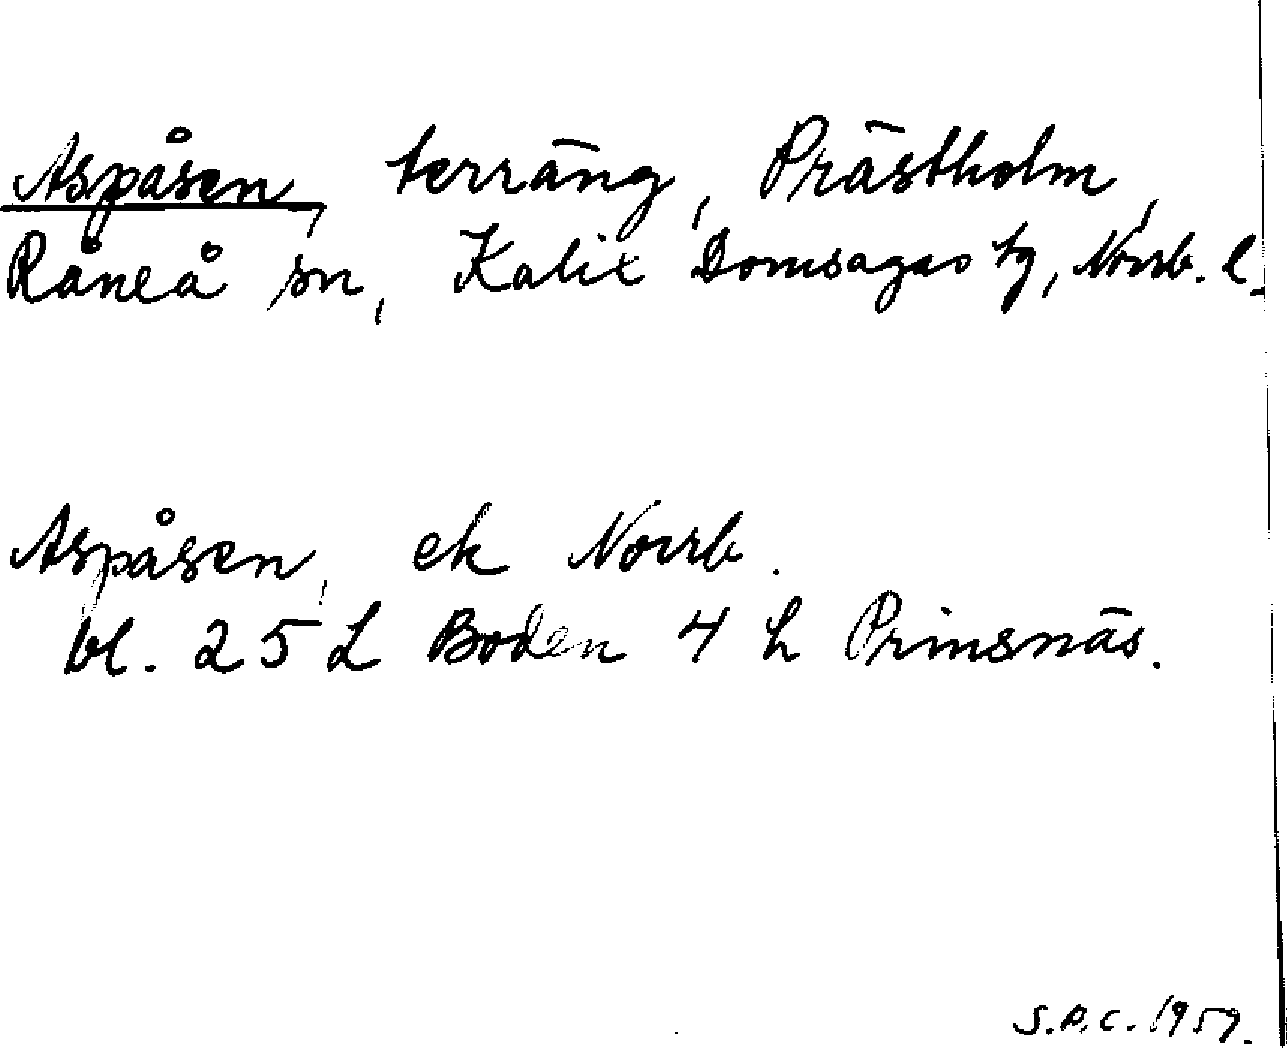 Aspåsen, terräng, Prästholm,
Råneå sn, Kalix Domsagas tg, Norrb. l.
Aspåsen, ek Norrb.
bl. 25 L Boden 4 h Prinsnäs.
S.P.C. 1959.